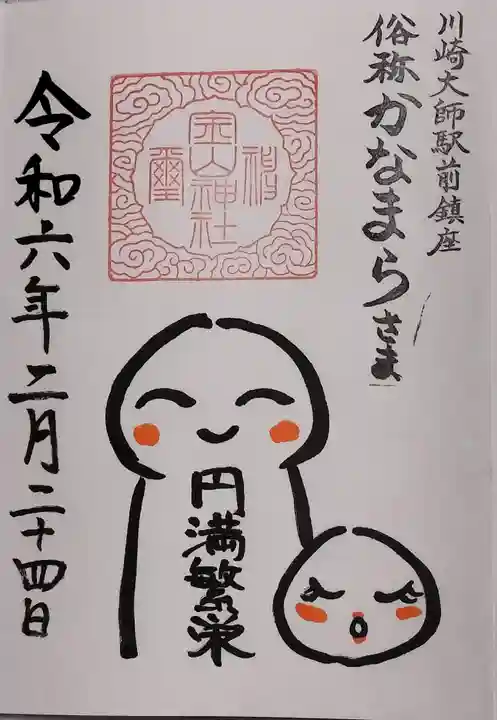 川崎大師駅前鎮座
俗称かなまらさま
金山神社
令和六年二月二十四日
円満繁栄